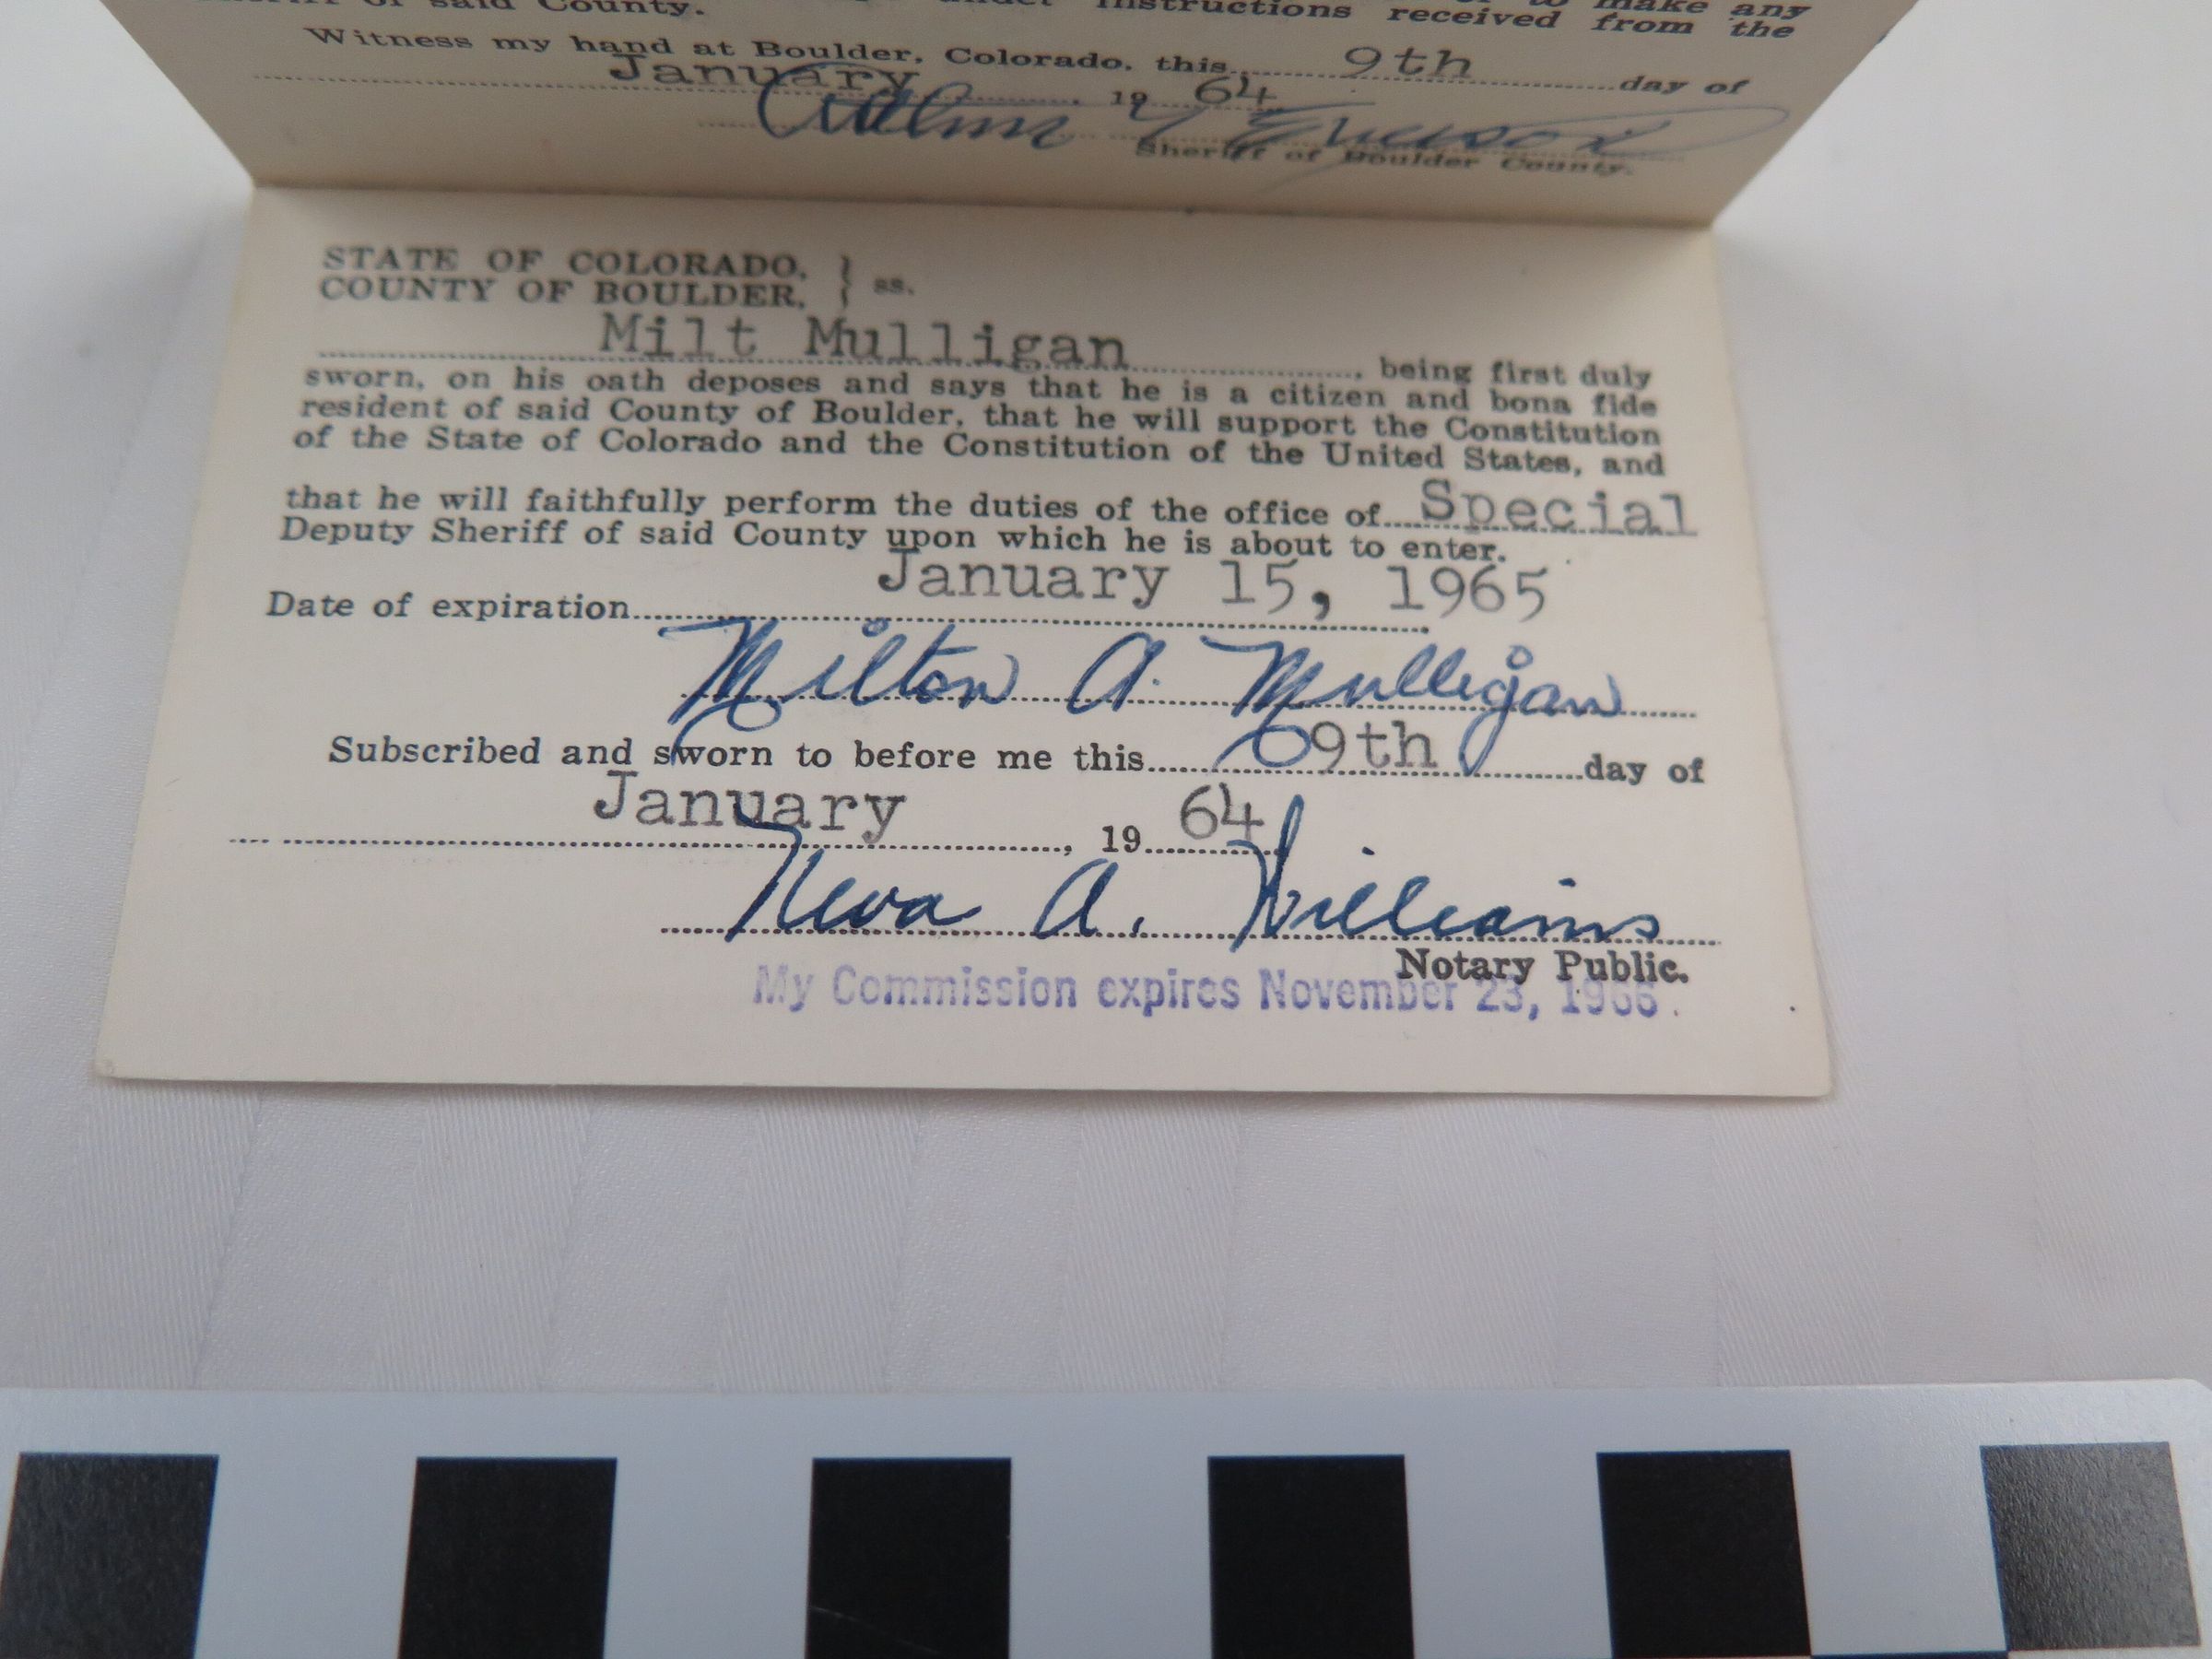 make any
of said County. instructions received from the
Witness my hand at Boulder, Colorado, this 9th day of
January, 19 64
Sheriff of Boulder County.
STATE OF COLORADO,
COUNTY OF BOULDER, } ss.
Milt Mulligan, being first duly
sworn, on his oath deposes and says that he is a citizen and bona fide
resident of said County of Boulder, that he will support the Constitution
of the State of Colorado and the Constitution of the United States, and
that he will faithfully perform the duties of the office of Special
Deputy Sheriff of said County upon which he is about to enter.
Date of expiration January 15, 1965
Milton A. Mulligan
Subscribed and sworn to before me this 9th day of
January, 19 64
Neva A. Williams
Notary Public.
My Commission expires November 23, 1966.